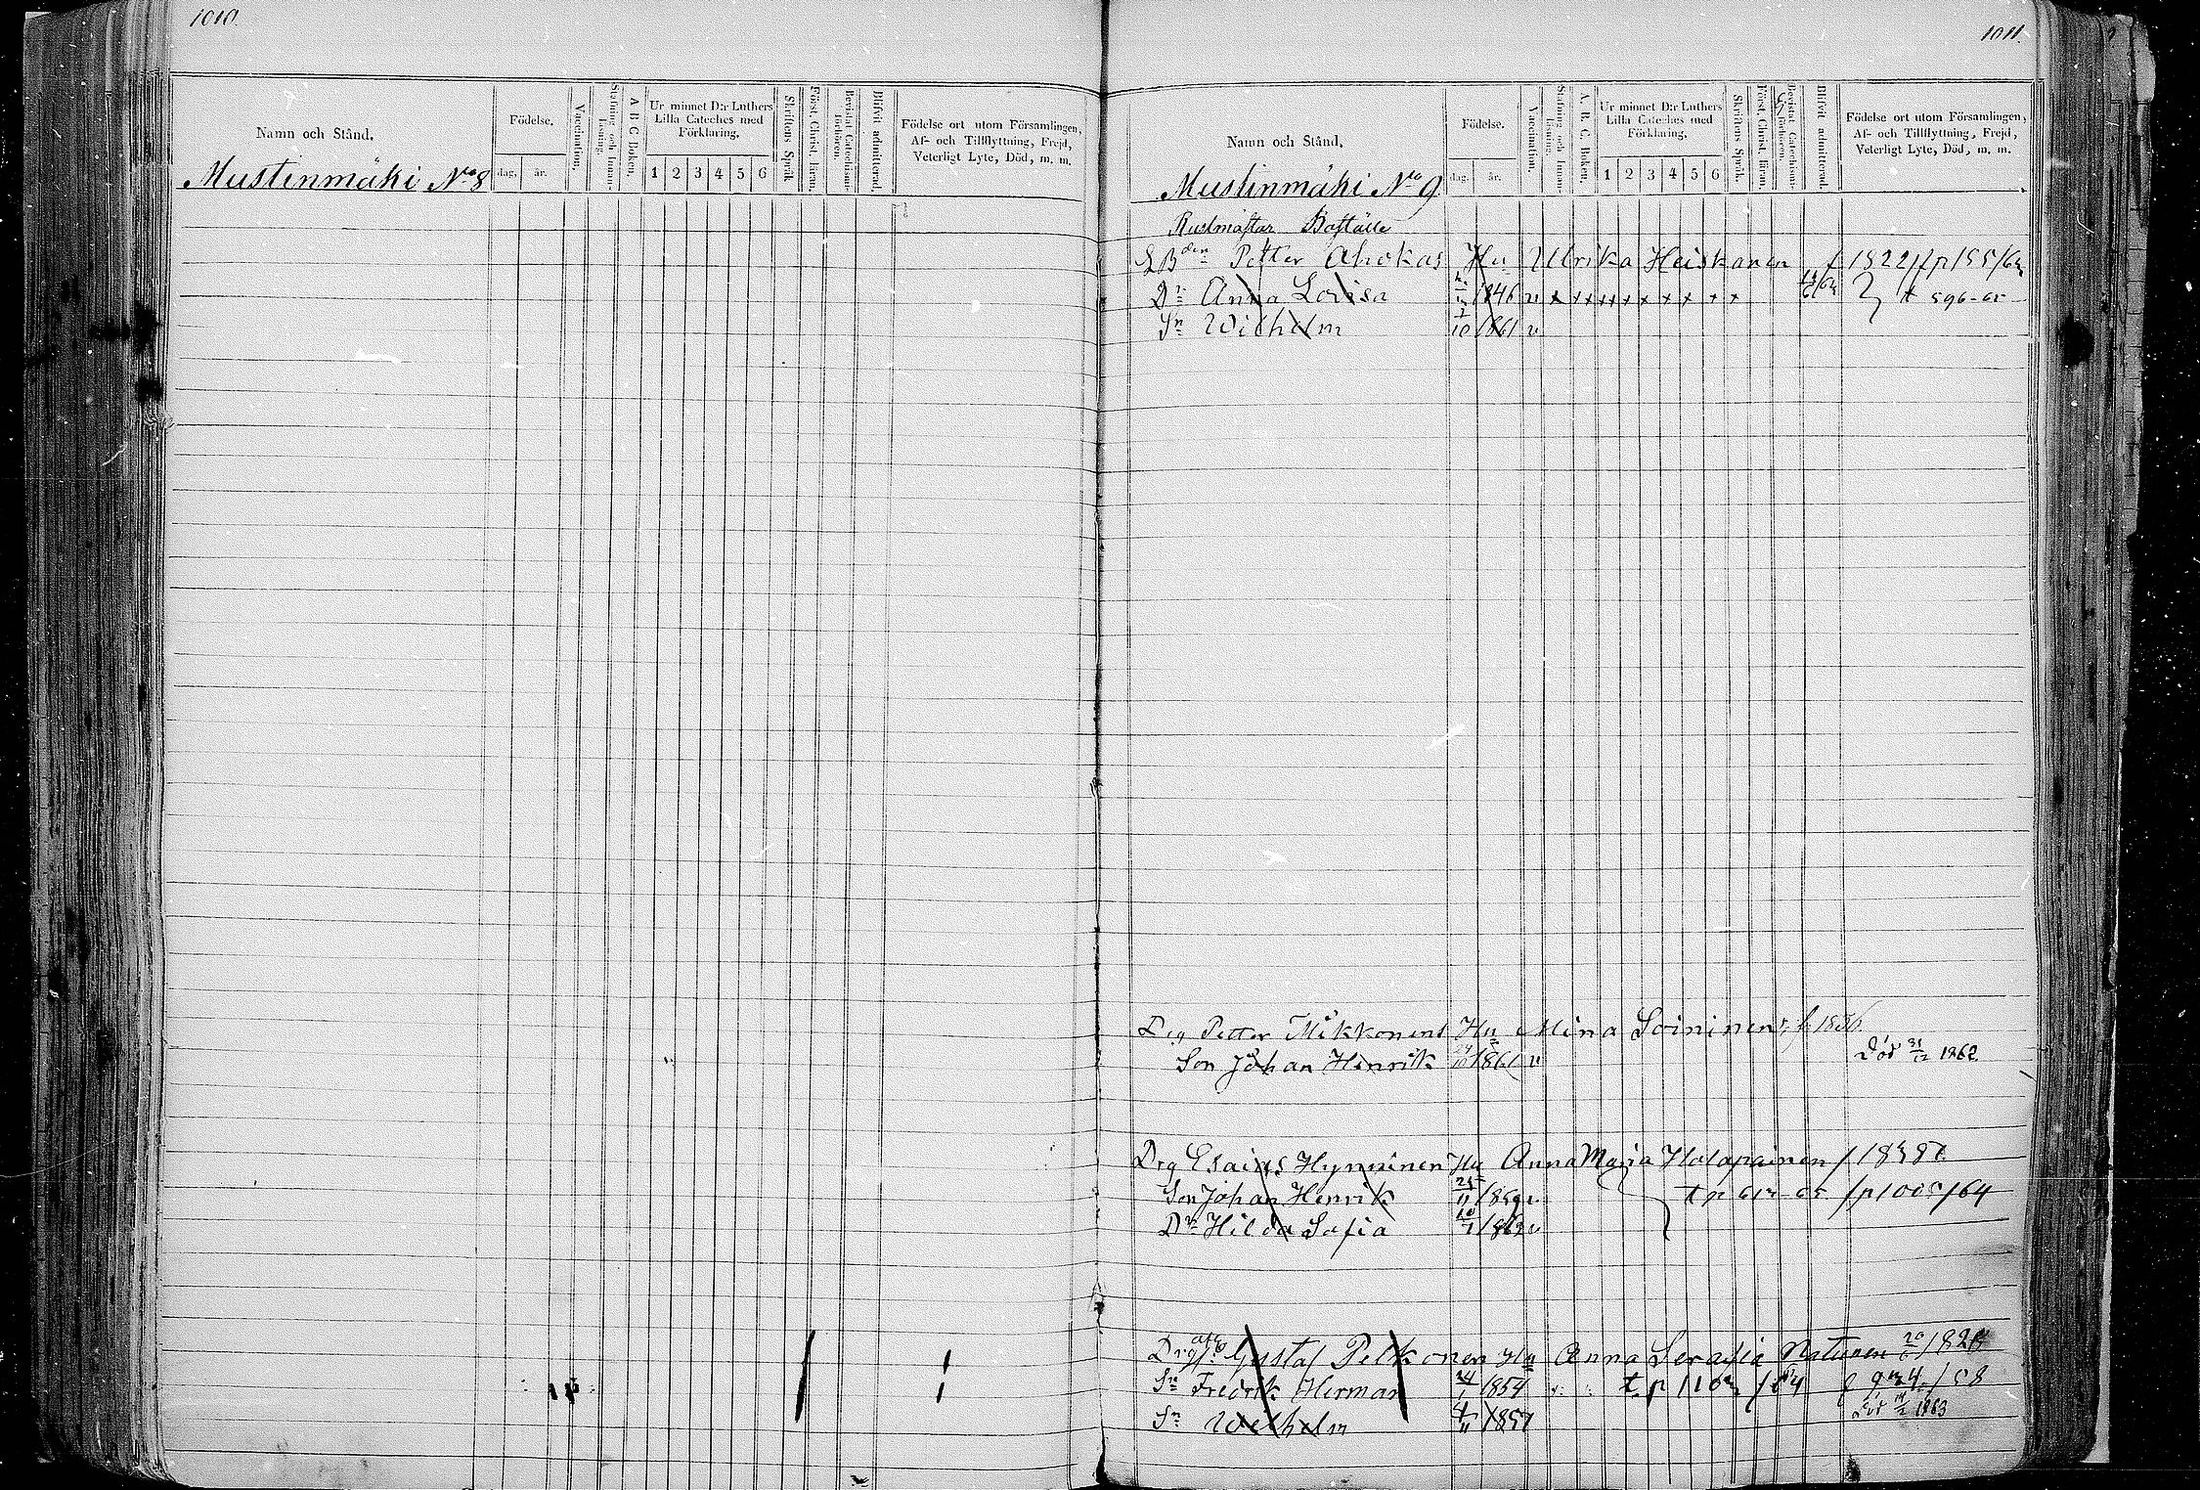 1010.
Namn och Stånd.
Födelse.
dag. år.
Vaccination.
Stafning och Innan-Läsning.
A B C Boken.
Ur minnet D:r Luthers Lilla Cateches med Förklaring.
1 2 3 4 5 6
Skriftens Språk.
Först. Christ. läran.
Bevistat Catechismi-förhören.
Blifvit admitterad.
Födelse ort utom Församlingen, Af- och Tillflyttning, Frejd, Veterligt Lyte, Död, m. m.
Mustinmäki No 8
1011.
Namn och Stånd.
Födelse.
dag. år.
Vaccination.
Stafning och Innan-Läsning.
A. B. C. Boken.
Ur minnet D:r Luthers Lilla Cateches med Förklaring.
1 2 3 4 5 6
Skriftens Språk.
Först. Christ. läran.
Bevistat Catechismi-förhören.
Blifvit admitterad.
Födelse ort utom Församlingen, Af- och Tillflyttning, Frejd, Veterligt Lyte, Död, m. m.
Mustinmäki No 9
Rustmästar Boställe
Petter Ahokas Hu Ulrika Heiskanen f 1822
Dr Anna Lovisa 1846 v x x x x x x x x x x
Sn Wilhelm 1861 v
Drg Petter Mikkonens Hu Mina Soininen
Son Johan Henrik 1861 v Död 31/12 1862
Drg Esaias Hynninen Hu Anna Maria Holopainen
Son Johan Henrik 25/11 1859 v
Dr Hilda Safia 1863 v
Drg Gustaf Pelkonen Hu Anna Serafia
Sn Fredrik Herman 24/1 1854
Sn Wilhelm 4/11 1857 Död 1863